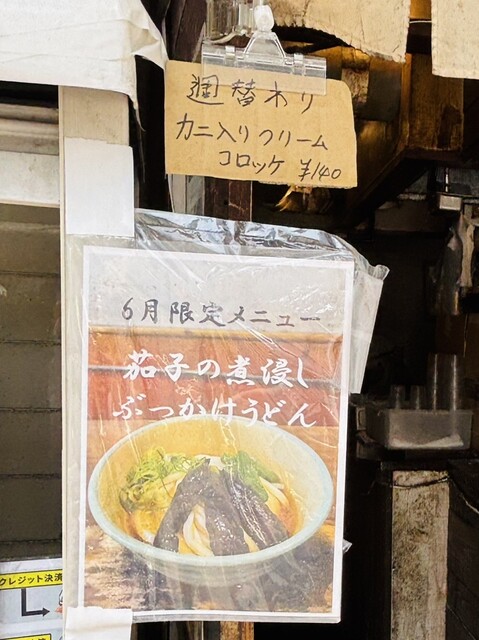 週替わり
カニ入りクリーム
コロッケ ¥140
6月限定メニュー
茄子の煮浸し
ぶっかけうどん
クレジット決済